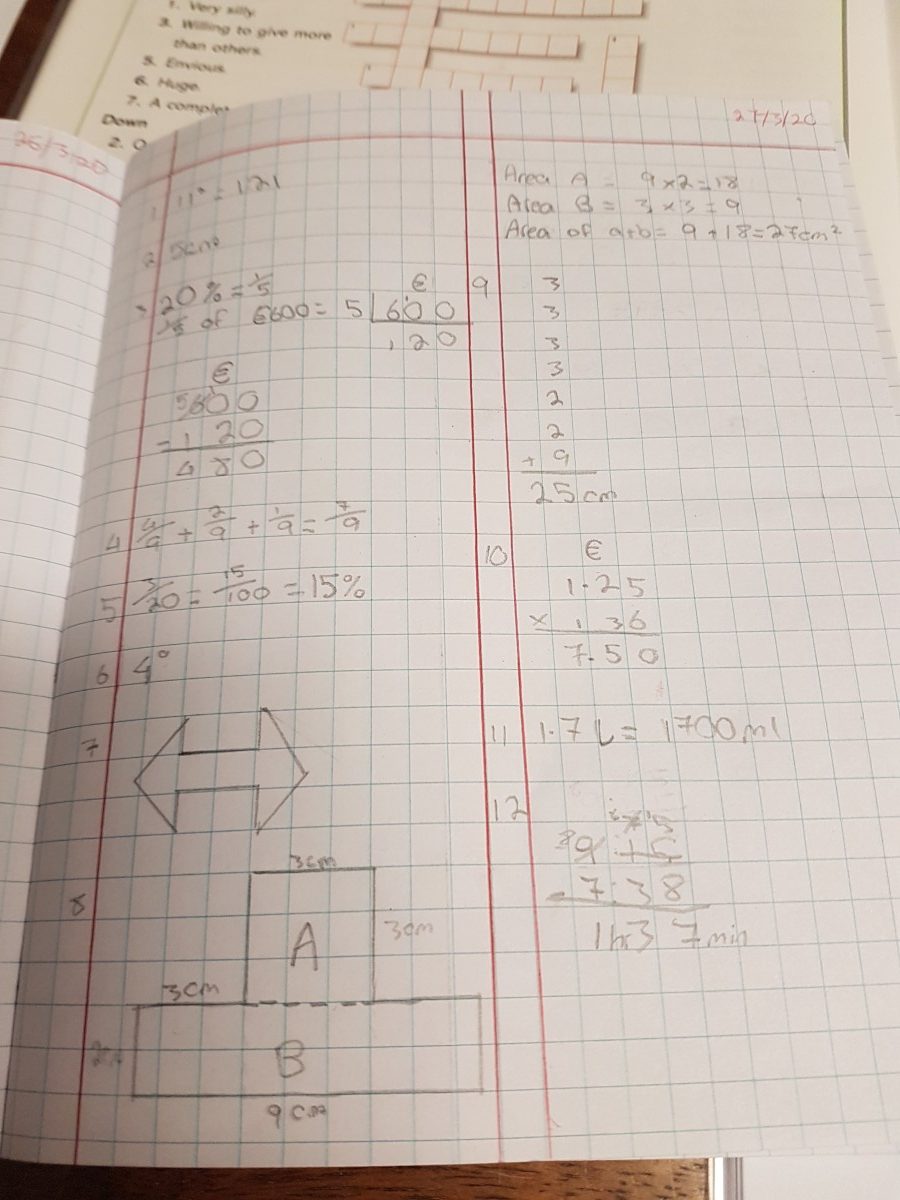 1. Very silly.
3. Willing to give more
than others.
5. Envious.
6. Huge.
7. A complet
Down
2. O
26/3/20
27/3/20
1 11² = 121
2 5cm²
20% = 1/5
1/5 of €600 = 5 600
€
120
€
5600
- 120
480
4 4/9 + 2/9 + 1/9 = 7/9
5 3/20 = 15/100 = 15%
6 4°
7
8 3cm
A 3cm
3cm
B
9cm
Area A = 9 x 2 = 18
Area B = 3 x 3 = 9
Area of a+b = 9 + 18 = 27cm²
9 3
3
3
3
2
2
+ 9
25cm
10 €
1.25
x 36
7.50
11 1.7L = 1700ml
12
9:15
- 7:38
1hr 37min